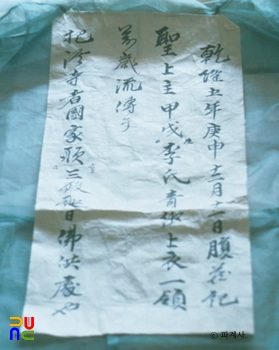 乾隆五年庚申十二月十一日腹藏記
聖上主甲戌李氏青紗上衣一領
萬歲流傳于
把溪寺者國家願堂三殿日佛也
© 파계사